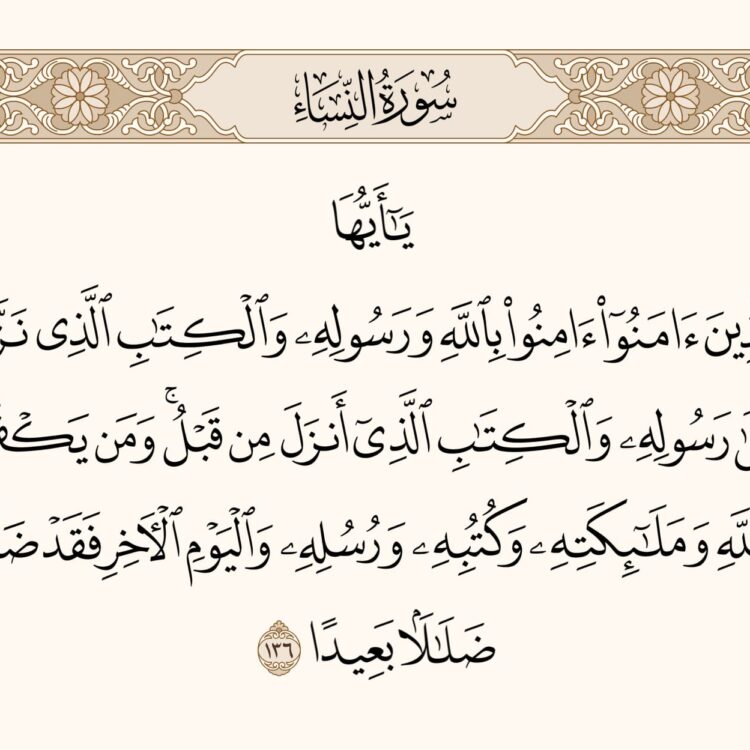 سُورَةُ النِّسَاءِ
يَـٰٓأَيُّهَا
ءَامَنُوٓا۟ ءَامِنُوا۟ بِٱللَّهِ وَرَسُولِهِۦ وَٱلْكِتَـٰبِ ٱلَّذِى
رَسُولِهِۦ وَٱلْكِتَـٰبِ ٱلَّذِىٓ أَنزَلَ مِن قَبْلُ ۚ وَمَن
وَمَلَـٰٓئِكَتِهِۦ وَكُتُبِهِۦ وَرُسُلِهِۦ وَٱلْيَوْمِ ٱلْـَٔاخِرِ فَقَدْ
ضَلَـٰلًۢا بَعِيدًا ١٣٦